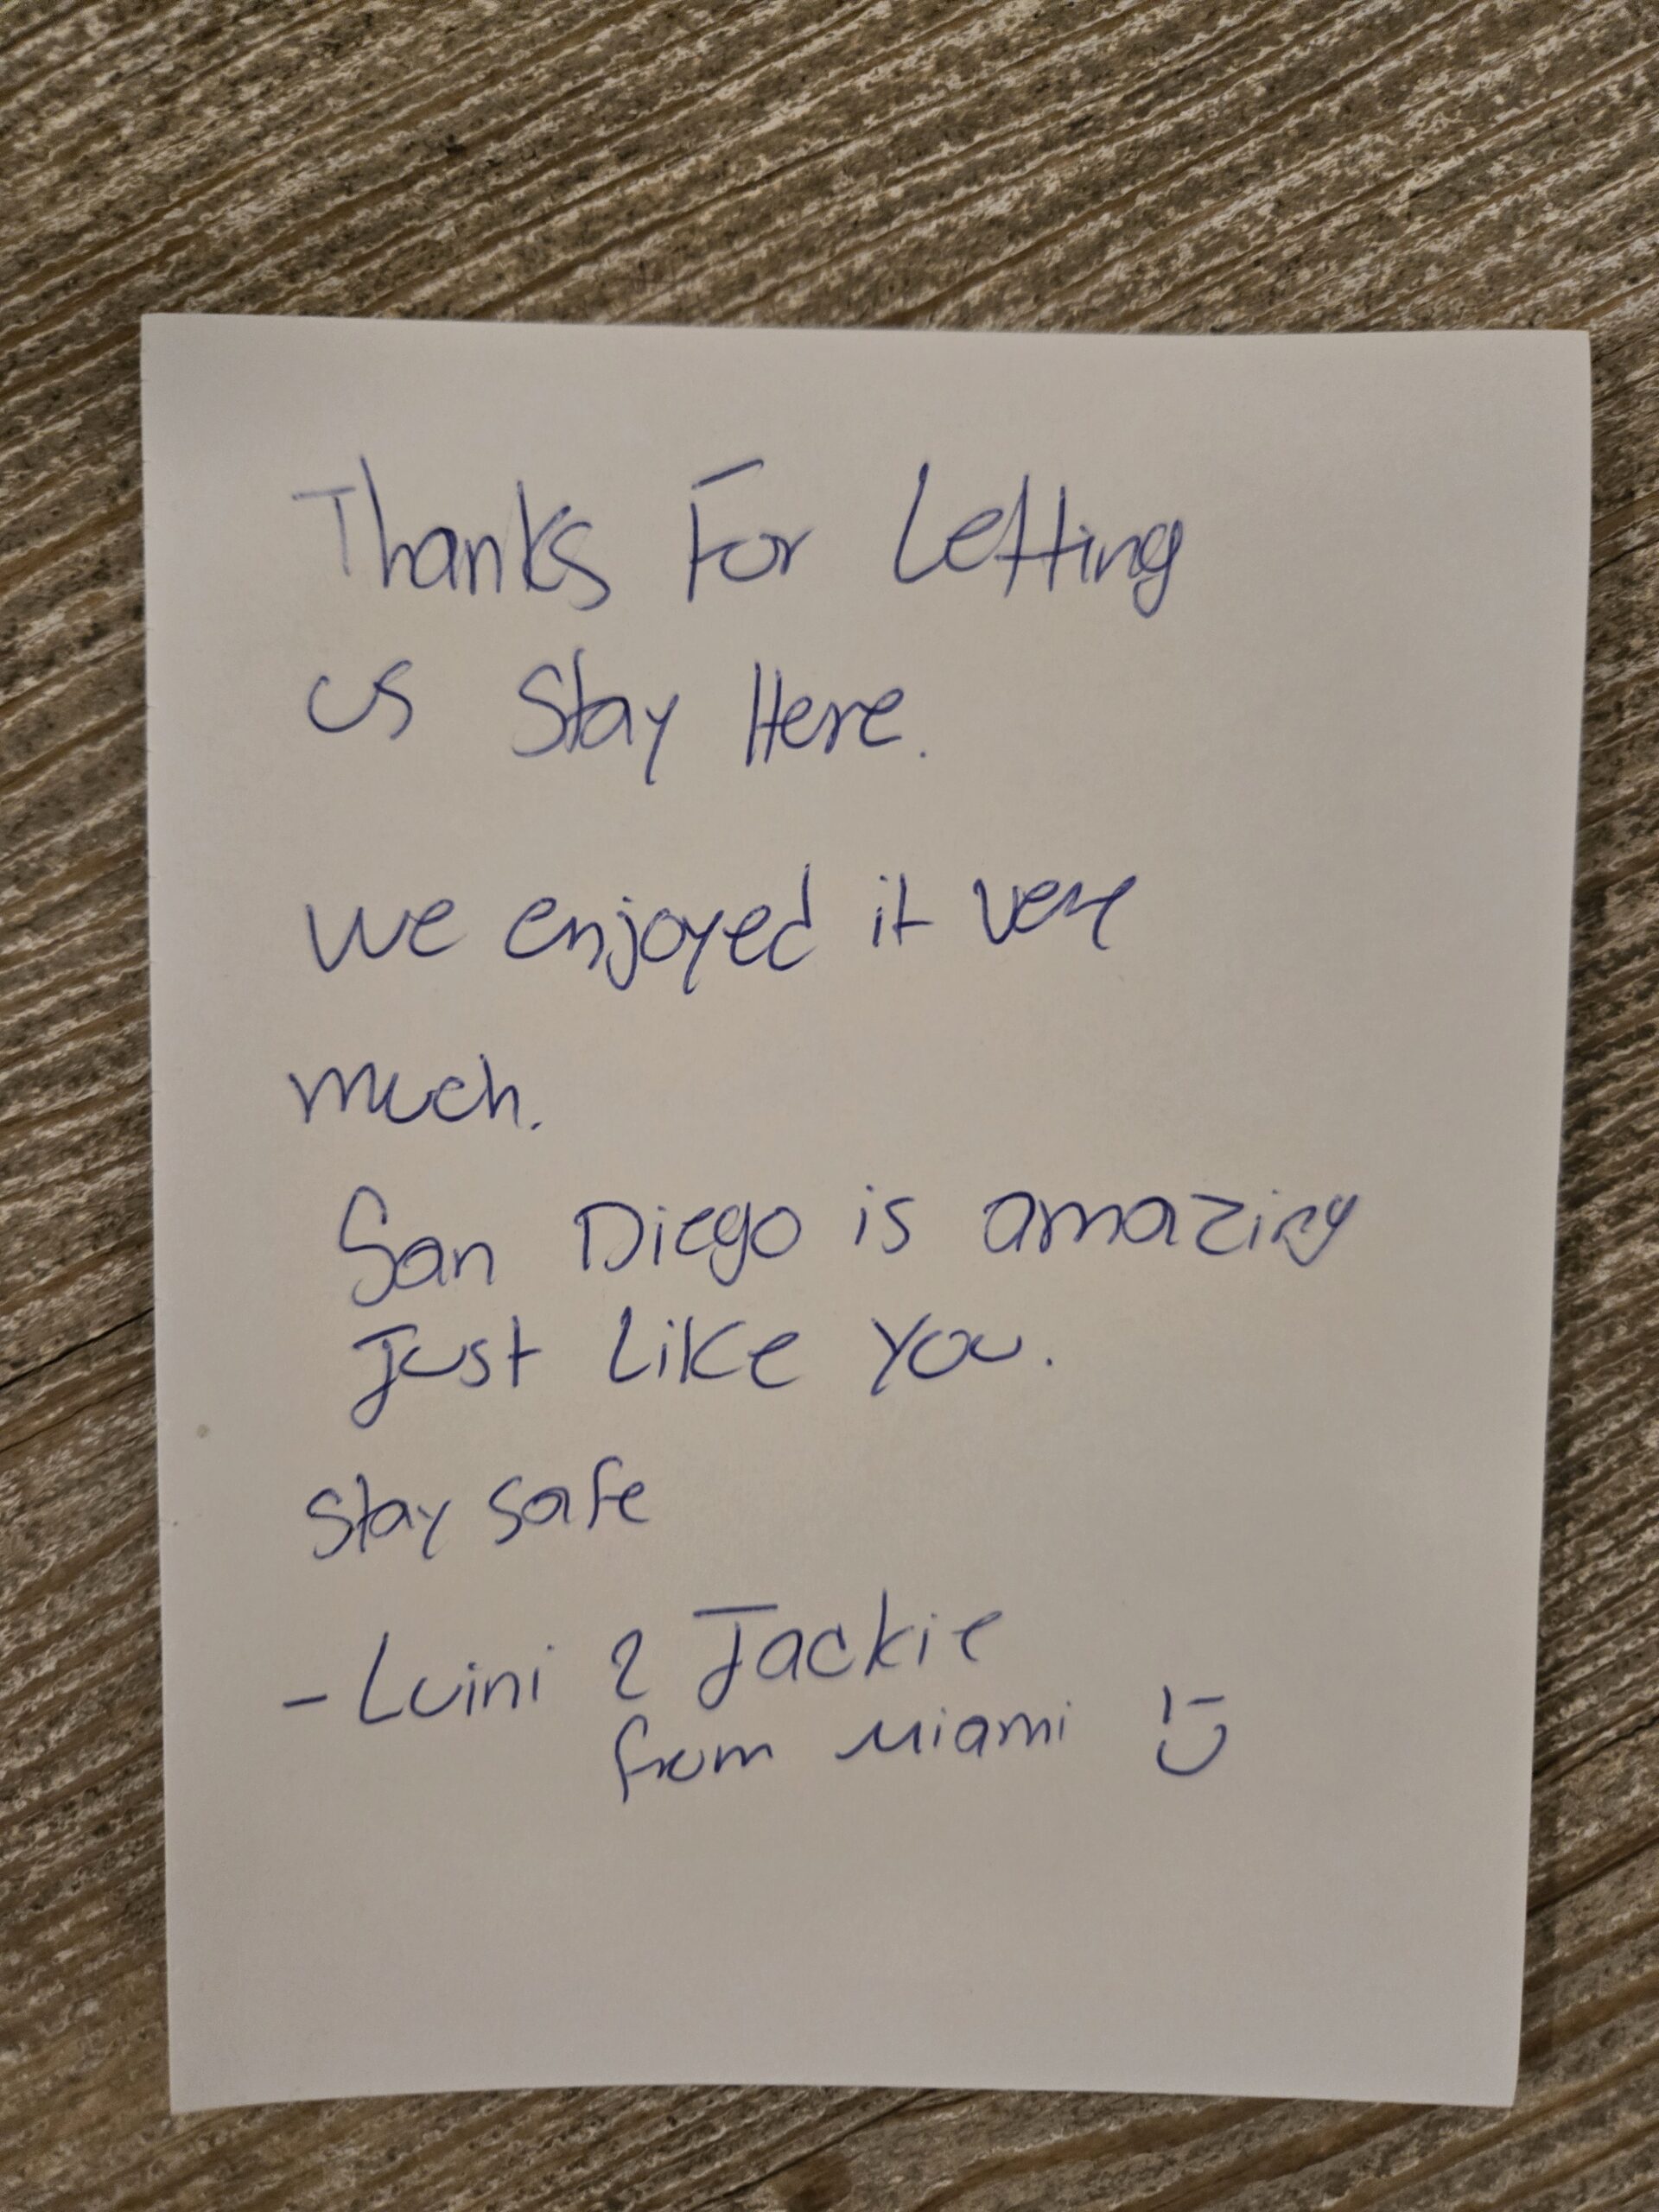 Thanks For Letting
us Stay Here.
we enjoyed it very
much.
San Diego is amazing
Just Like You.
Stay safe
- Luini & Jackie
from Miami :)